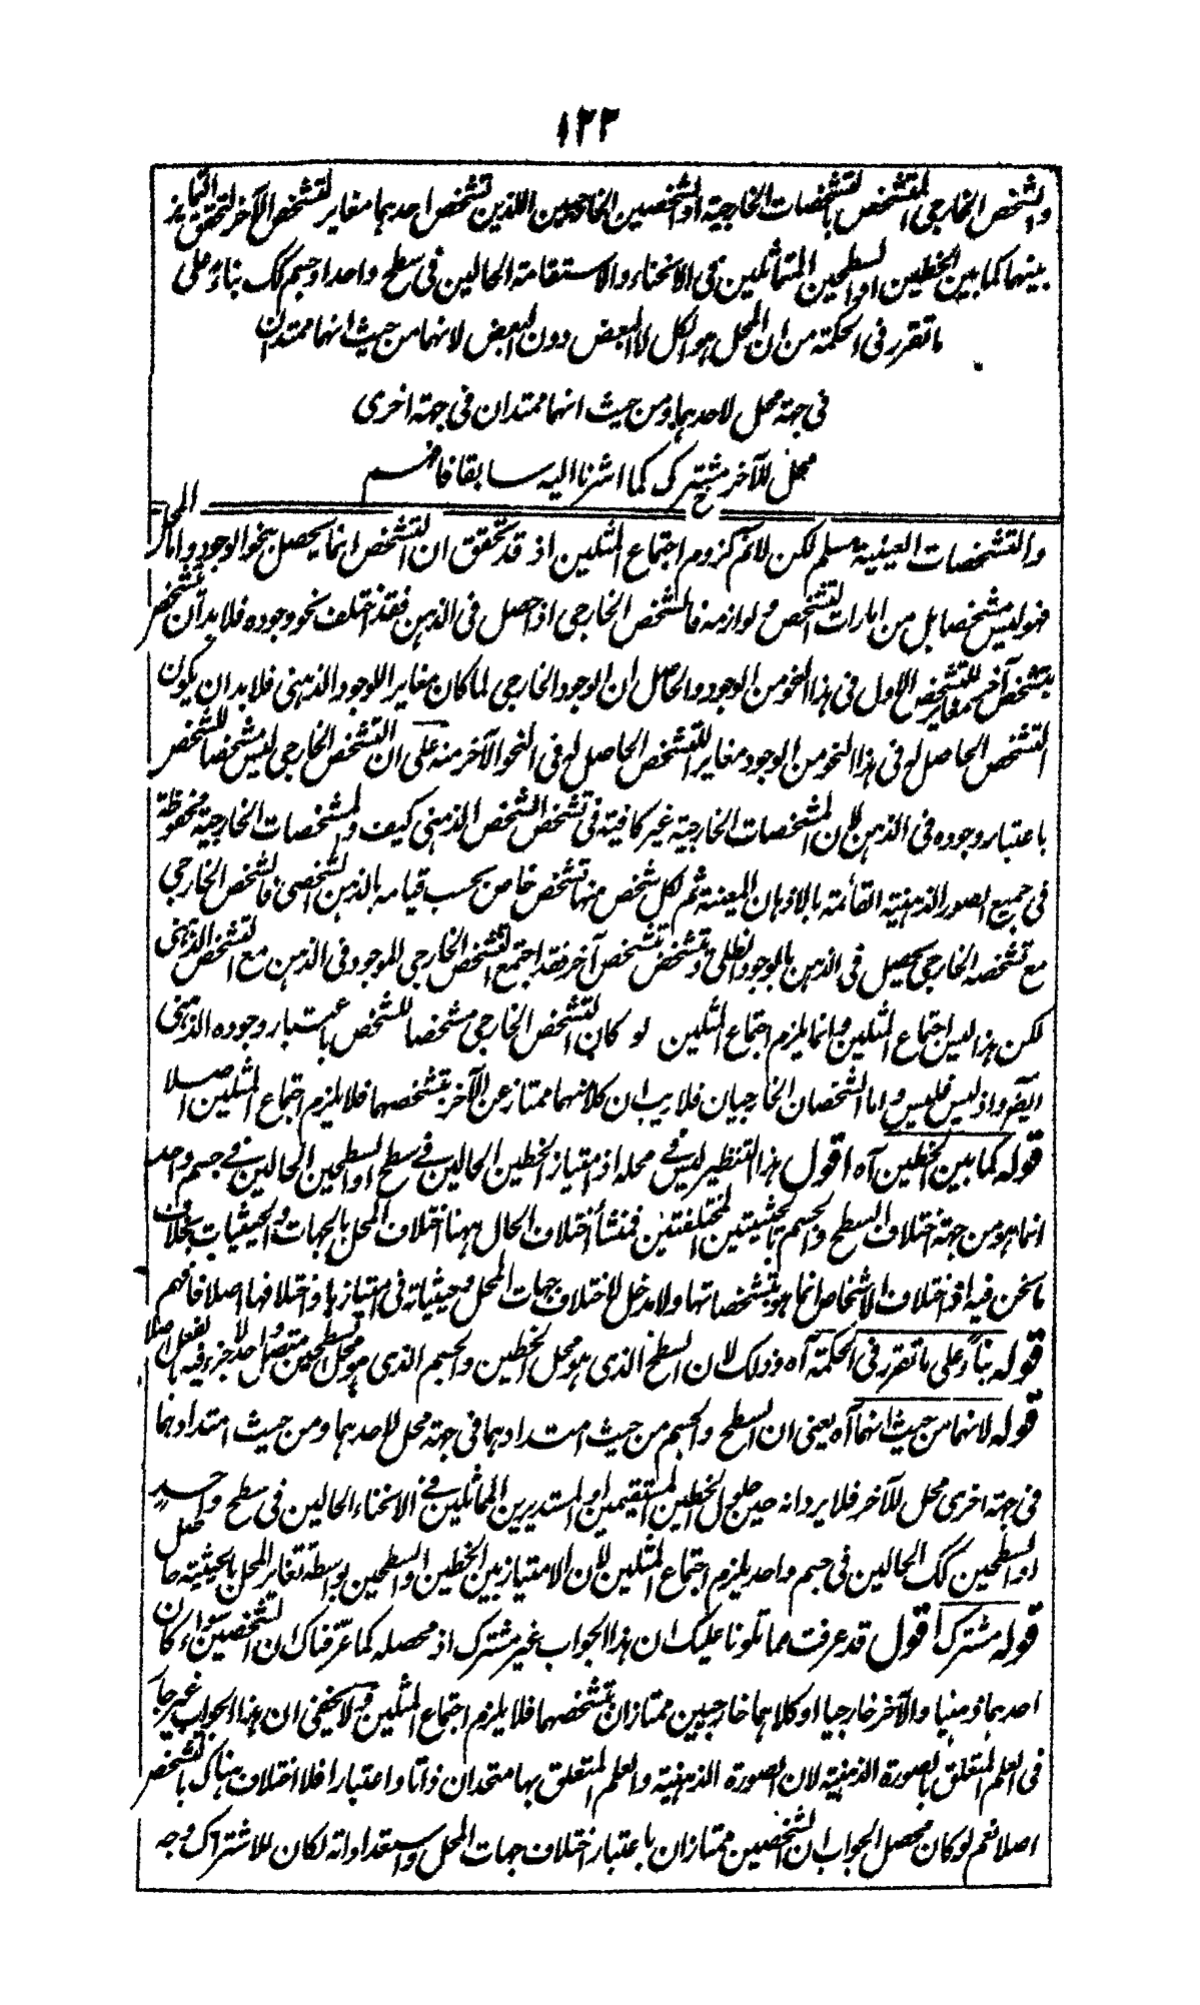 ١٢٣
والشخص الخارجي المتشخص بالتشخصات الخارجية او الشخصين الخارجيين اللذين تشخص احدهما مغاير لتشخص الآخر لتحقق التمايز
بينهما كما بين الخطين او السطحين المتماثلين في الانحناء والاستقامة الحالين في سطح واحد او جسم كك بناء على
ما تقرر في الحكمة من ان المحل هو الكل لا البعض دون البعض لانهما من حيث انهما ممتدان
في جهة محل لاحدهما ومن حيث انهما ممتدان في جهة اخرى
محل للآخر مشترك كما اشرنا اليه سابقا فافهم
والتشخصات العينية مسلم لكن لانم لزوم اجتماع المثلين اذ قد تحقق ان التشخص انما يحصل بنحو الوجود واما المحل
فهو ليس مشخصا بل من امارات التشخص ولوازمه فالشخص الخارجي اذا حصل في الذهن فقد اختلف نحو وجوده فلا بد ان يتشخص
بتشخص آخر مغاير للتشخص الاول في هذا النحو من الوجود والحاصل ان الوجود الخارجي لما كان مغاير اللوجود الذهني فلا بد ان يكون
التشخص الحاصل له في هذا النحو من الوجود مغاير للتشخص الحاصل له في النحو الآخر منه على ان التشخص الخارجي ليس مشخصا للشخص
باعتبار وجوده في الذهن لان المشخصات الخارجية غير كافية في تشخص الشخص الذهني كيف والمشخصات الخارجية محفوظة
في جميع الصور الذهنية القائمة بالاذهان المعينة ثم لكل شخص منها تشخص خاص بحسب قيامه بالذهن الشخصي فالشخص الخارجي
مع تشخصه الخارجي يحصل في الذهن بالوجود الظلي وتشخص بتشخص آخر فقد اجتمع التشخص الخارجي للموجود في الذهن مع التشخص الذهني
لكن هذا ليس اجتماع المثلين وانما يلزم اجتماع المثلين لو كان التشخص الخارجي مشخصا للشخص باعتبار وجوده الذهني
ايضا واذ ليس فليس واما الشخصان الخارجيان فلا ريب ان كلا منهما ممتاز عن الآخر بتشخصهما فلا يلزم اجتماع المثلين اصلا
قوله كما بين الخطين آه اقول هذا التنظير ليس في محله اذ امتياز الخطين الحالين في سطح او السطحين الحالين في جسم واحد
انما هو من جهة اختلاف السطح والجسم بالحيثيتين المختلفتين فمنشأ اختلاف الحال ههنا اختلاف المحل بالجهات والحيثيات بخلاف
ما نحن فيه اذ اختلاف الاشخاص انما هو بتشخصاتها ولا مدخل لاختلاف جهات المحل وحيثياته في امتيازها واختلافها اصلا فافهم
قوله بناء على ما تقرر في الحكمة آه وذلك لان السطح الذي هو محل الخطين والجسم الذي هو محل السطحين متصل واحد لا جزء فيه بالفعل اصلا
قوله لانهما من حيث انهما آه يعني ان السطح والجسم من حيث امتدادهما في جهة محل لاحدهما ومن حيث امتدادهما
في جهة اخرى محل للآخر فلا يرد انه حين حلول الخطين المستقيمين او المستديرين المماثلين في الانحناء الحالين في سطح واحد
او السطحين كك الحالين في جسم واحد يلزم اجتماع المثلين لان الامتياز بين الخطين والسطحين بواسطة تغاير المحل بالحيثية حاصل
قوله مشترك اقول قد عرفت مما تلونا عليك ان هذا الجواب غير مشترك اذ محصله كما عرفناك ان الشخصين سواء كان
احدهما ذهنيا والآخر خارجيا او كلاهما خارجيين ممتازان بتشخصهما فلا يلزم اجتماع المثلين ولا يخفى ان هذا الجواب غير جار
في العلم المتعلق بالصورة الذهنية لان الصورة الذهنية والعلم المتعلق بها متحدان ذاتا واعتبارا فلا اختلاف هناك بالتشخص
اصلا نعم لو كان محصل الجواب ان الشخصين ممتازان باعتبار اختلاف جهات المحل واستعداداته لكان للاشتراك وجه